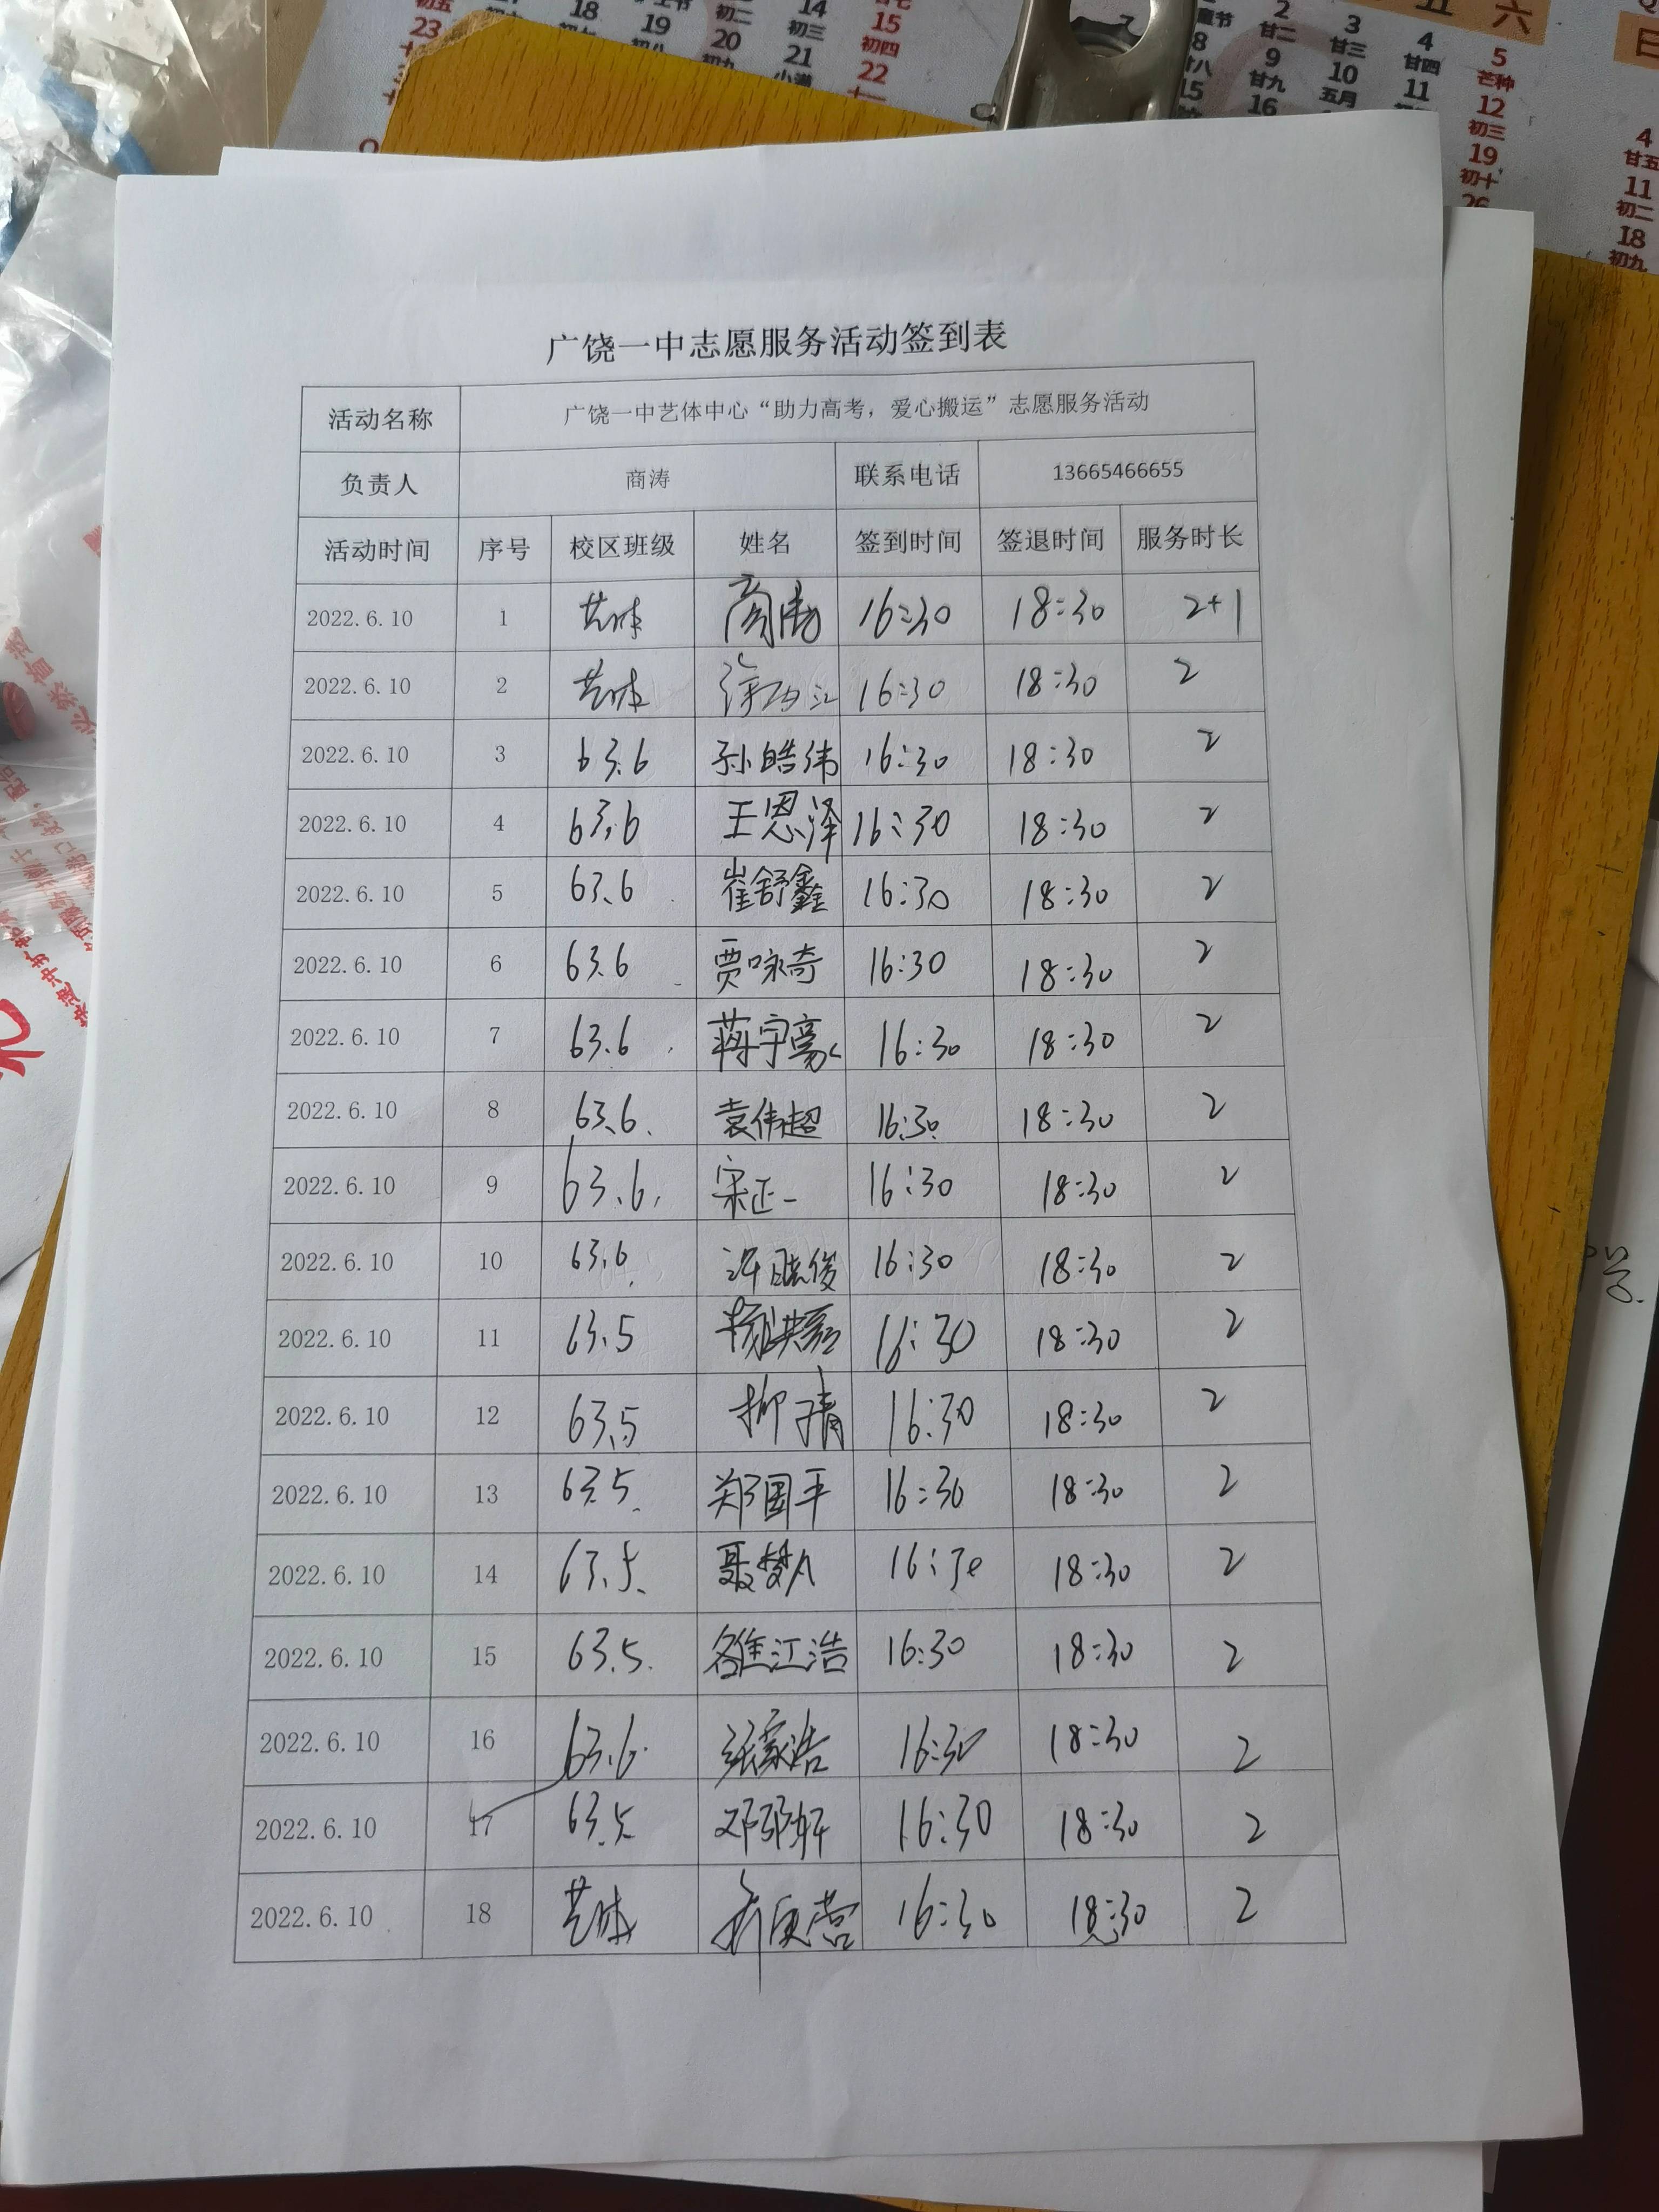 广饶一中志愿服务活动签到表
活动名称 广饶一中艺体中心“助力高考，爱心搬运”志愿服务活动
负责人 商涛 联系电话 13665466655
活动时间 序号 校区班级 姓名 签到时间 签退时间 服务时长
2022.6.10 1 艺体 商涛 16:30 18:30 2+1
2022.6.10 2 艺体 16:30 18:30 2
2022.6.10 3 63.6 孙皓伟 16:30 18:30 2
2022.6.10 4 63.6 王恩泽 16:30 18:30 2
2022.6.10 5 63.6 崔舒鑫 16:30 18:30 2
2022.6.10 6 63.6 贾咏奇 16:30 18:30 2
2022.6.10 7 63.6 蒋宇豪 16:30 18:30 2
2022.6.10 8 63.6. 袁伟超 16:30 18:30 2
2022.6.10 9 63.6. 宋正一 16:30 18:30 2
2022.6.10 10 63.6. 16:30 18:30 2
2022.6.10 11 63.5 16:30 18:30 2
2022.6.10 12 63.5 柳婧 16:30 18:30 2
2022.6.10 13 63.5. 郑国平 16:30 18:30 2
2022.6.10 14 63.5. 16:30 18:30 2
2022.6.10 15 63.5. 雒江浩 16:30 18:30 2
2022.6.10 16 63.6. 张家浩 16:30 18:30 2
2022.6.10 17 63.5 16:30 18:30 2
2022.6.10 18 艺体 16:30 18:30 2